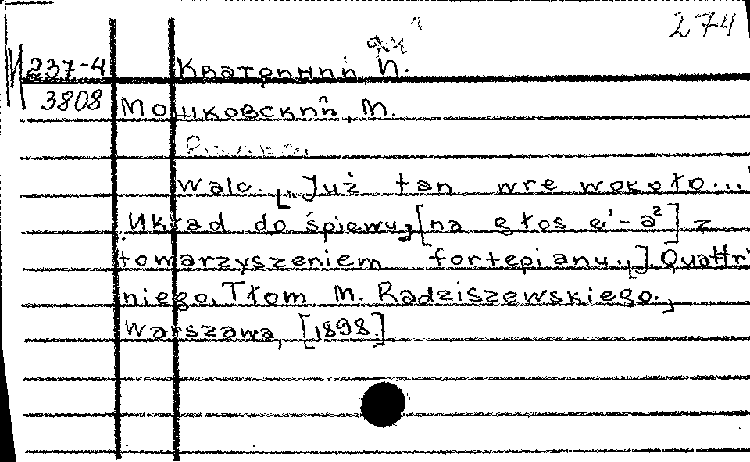 274
И 237-4 Кватрини, И.
3808 Мошковский, М.
Walc. „Już tan wre wokoło..."
Układ do śpiewu, [na głos e¹-a²] z
towarzyszeniem fortepianu,] Quattri
niego. Tłom M. Radziszewskiego.,
Warszawa, [1898.]